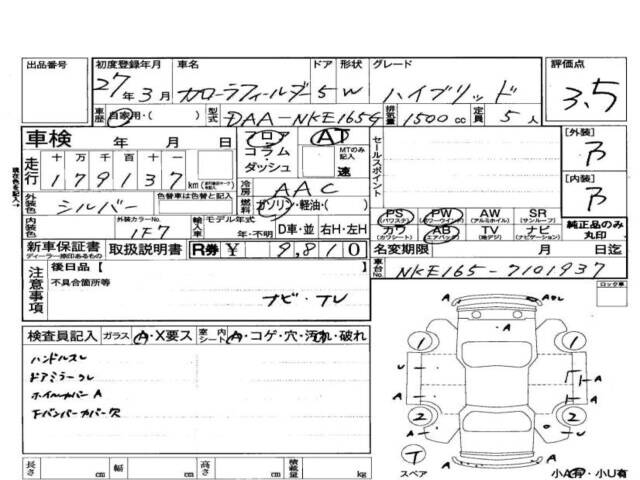 出品番号 初度登録年月 車名 ドア 形状 グレード 評価点
27年3月 カローラフィールダー 5 W ハイブリッド 3.5
車歴 自家用・( ) 型式 DAA-NKE165G 排気量 1500cc 定員 5人
車検 年 月 日 フロア コラム・ダッシュ AT MTのみ記入 速 セールスポイント [外装] B
走行 十万千百十一 179137km 冷房 AAC [内装] B
外装色 シルバー 色替車は色替と記入 燃料 ガソリン・軽油・( )
PS (パワステ) PW (パワーウインド) AW (アルミホイル) SR (サンルーフ) 純正品のみ丸印
内装色 外装カラーNo. 1F7 輸入車 モデル年式 年・不明 D車・並 右H・左H カワ (カワシート) AB (エアバック) TV (地デジ) ナビ (ナビゲーション)
新車保証書 ディーラー捺印あるもの 取扱説明書 R券 ¥ 9,810 名変期限 月 日迄
注意事項 後日品 [ ] 車台No. NKE165-7101937
不具合箇所等 ロック車
ナビ・TV
検査員記入 ガラス A・X要ス 室内シート A・コゲ・穴・汚れ・破れ
ハンドルスレ
ドアミラースレ
ホイルカバーA
下バンパーカバー欠
A A
1 1
U A A
A A A
2 2 U
A A
T スペア A
長さ cm 幅 cm 高さ cm 積載量 kg 小A有・小U有
現在色を記入→